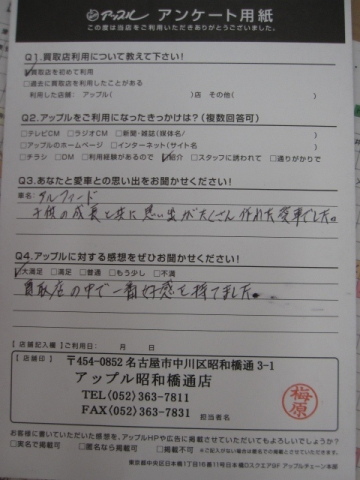 アップル アンケート用紙
この度は当店をご利用いただきありがとうございました。
Q1.買取店利用について教えて下さい!
☑買取店を初めて利用
□過去に買取店を利用したことがある
利用した店舗: アップル( )店 その他( )
Q2.アップルをご利用になったきっかけは?(複数回答可)
□テレビCM □ラジオCM □新聞・雑誌(媒体名/ )
□アップルのホームページ □インターネット(サイト名 )
□チラシ □DM □利用経験があるので ☑紹介 □スタッフに誘われて □通りがかりで
Q3.あなたと愛車との思い出をお聞かせください!
車名: アルファード
子供の成長と共に思い出がたくさん作れた愛車でした。
Q4.アップルに対する感想をぜひお聞かせください!
☑大満足 □満足 □普通 □もう少し □不満
買取店の中で一番好感を持てました。
【店舗記入欄】ご利用日: 年 月 日
【店舗印】
〒454-0852 名古屋市中川区昭和橋通3-1
アップル昭和橋通店
TEL(052)363-7811
FAX(052)363-7831
担当者名
梅原
お客様に書いていただいた感想を、アップルHPや広告に掲載させていただいてもよろしいでしょうか?
□実名で掲載可 □匿名なら掲載可 □掲載不可 ※ご記入がない場合は匿名での掲載とさせていただきます。
東京都中央区日本橋1丁目16番11号日本橋DスクエアBF アップルチェーン本部